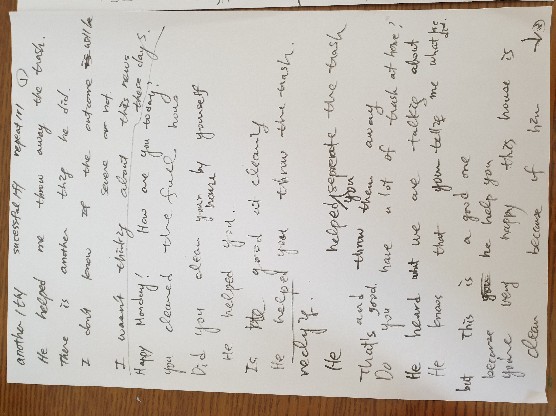 another 1 (H) sucessful HP repeat !!! ①
He helped me throw away the trash.
There is another thing he did.
I don't know if the outcome will be
severe or not.
I wasn't thinking about this news
these days.
Happy Monday! How are you today?
You cleaned the full house
Did you clean your house by yourself
He helped you.
Is he good at cleaning
He helped you throw the trash.
recly
He helped you seperate the trash
and throw them away
That's good.
Do you have a lot of trash at home?
He heard what we are talking about
He knows that you telling me what he
did.
but this is a good one
because he help you
You're very happy this house is
clean because of him →②